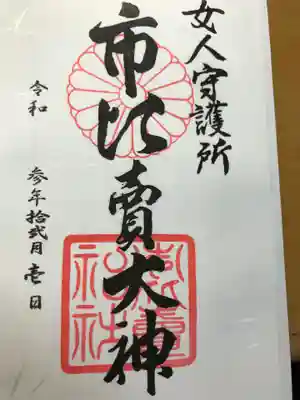 女人守護所
市比賣大神
令和
参年拾弐月壱日